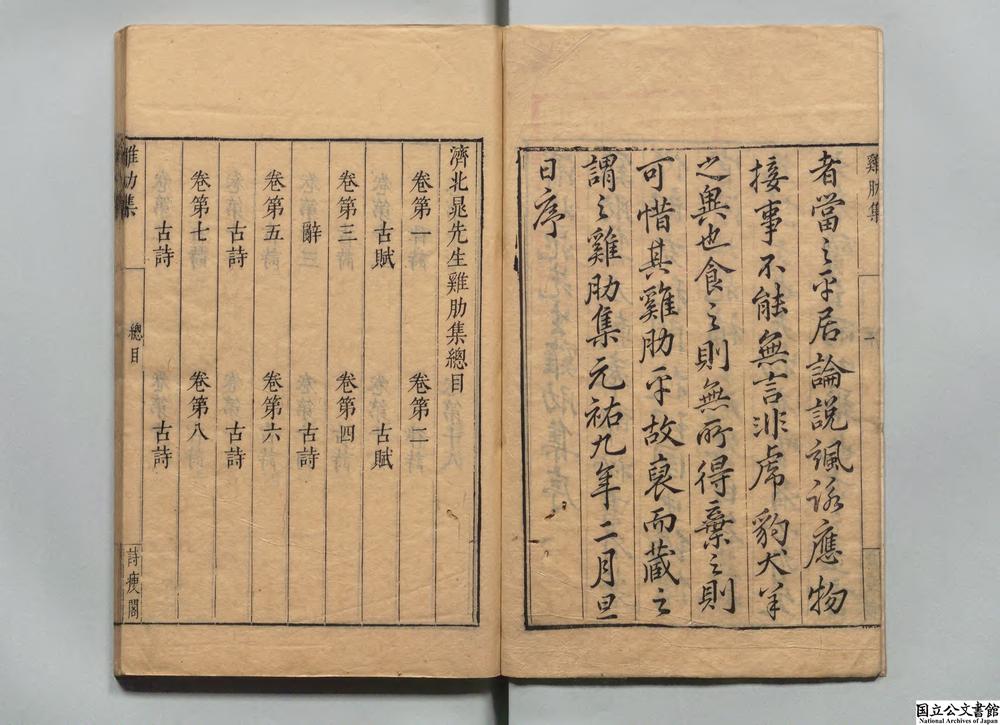 雞肋集
一
者當之平居論說諷詠應物
接事不能無言非虎豹犬羊
之異也食之則無所得棄之則
可惜其雞肋乎故裒而藏之
謂之雞肋集元祐九年二月旦
日序
濟北晁先生雞肋集總目
卷第一 卷第二
古賦 古賦
卷第三 卷第四
辭 古詩
卷第五 卷第六
古詩 古詩
卷第七 卷第八
古詩 古詩
雞肋集 總目 詩瘦閣
国立公文書館
National Archives of Japan